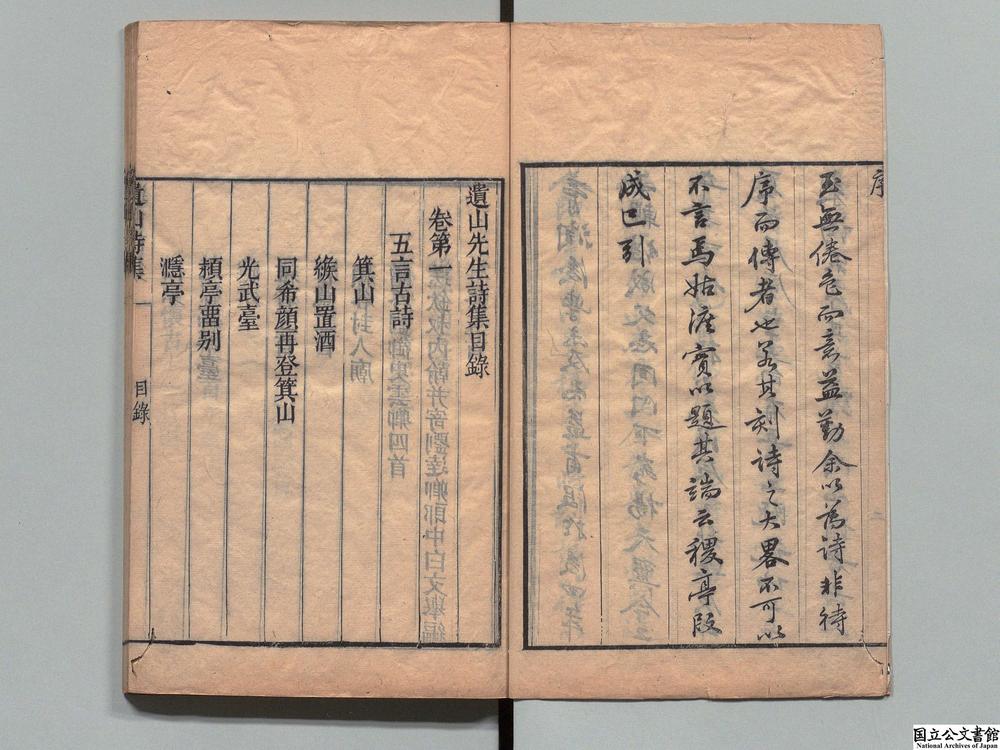 序
至無倦色而意益勤余以為詩非待
序而傳者也若其刻詩之大畧不可以
不言焉姑摭實以題其端云稷亭段
成己引
遺山先生詩集目錄
卷第一
五言古詩
箕山
緱山置酒
同希顔再登箕山
光武臺
潁亭畱别
濦亭
遺山詩集 一 目錄
国立公文書館
National Archives of Japan